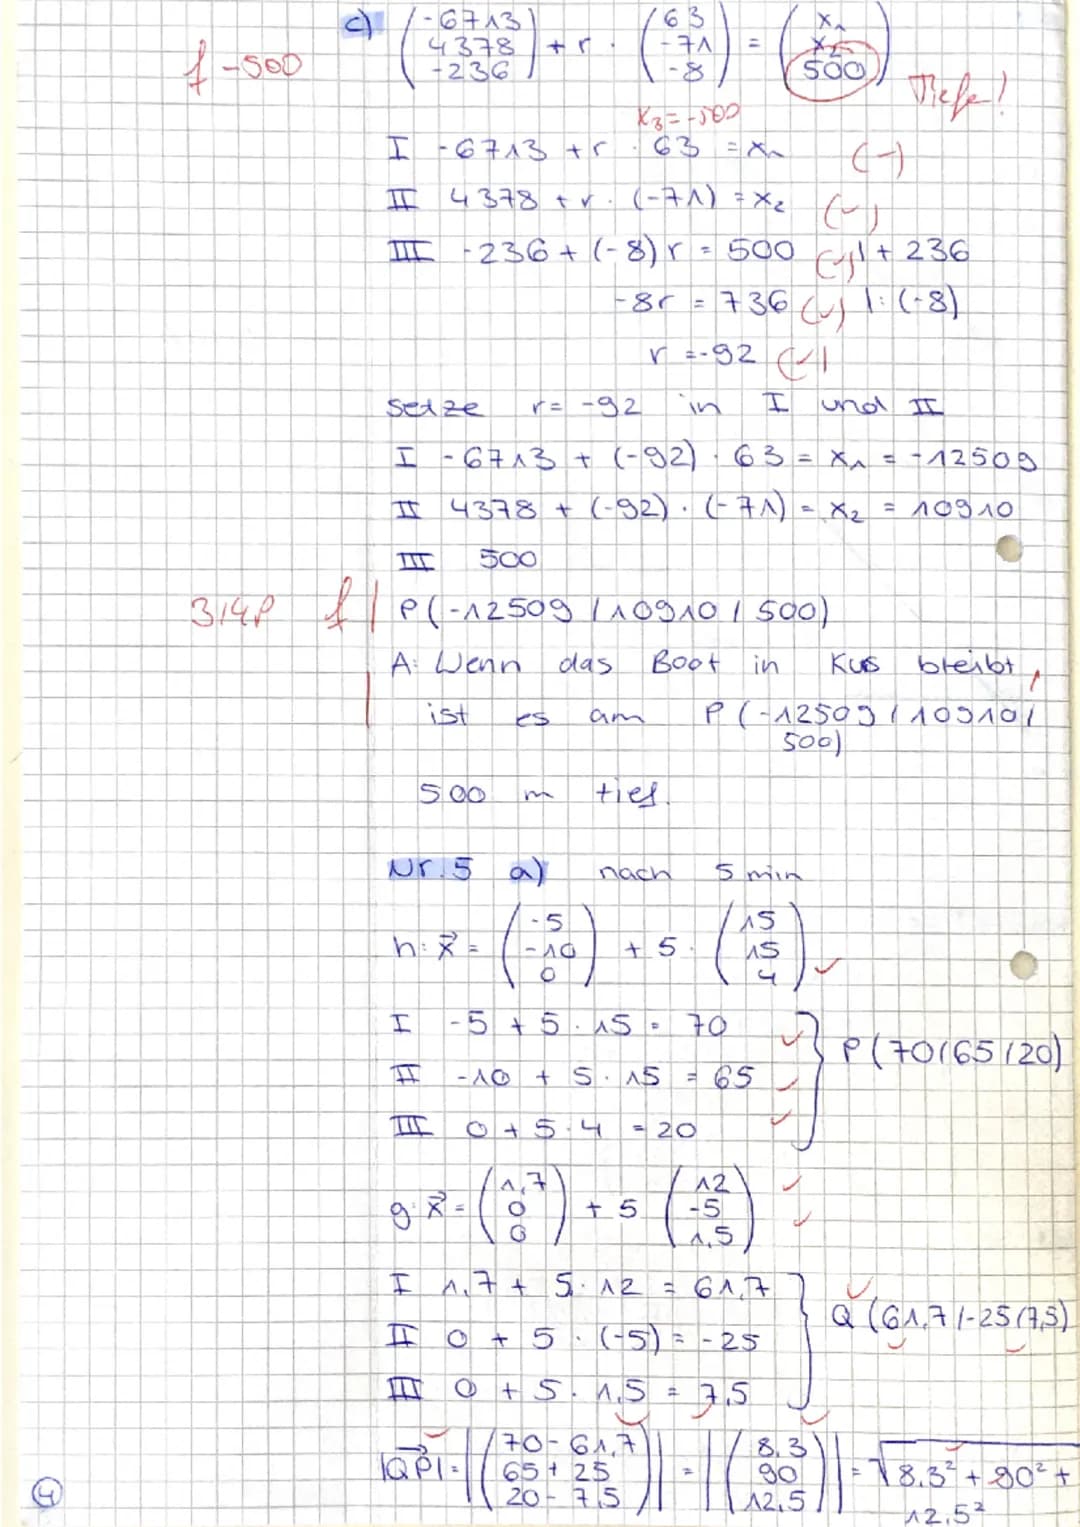 c) (-6713 / 4378 / -236) + r · (63 / -71 / -8) = (x₁ / x₂ / 500)
f -500
Tiefe!
x₃ = -500
I -6713 + r · 63 = x₁ (-)
II 4378 + r · (-71) = x₂ (✓)
III -236 + (-8) r = 500 (✓) | + 236
-8r = 736 (✓) | : (-8)
r = -92 (✓)
setze r = -92 in I und II
I -6713 + (-92) · 63 = x₁ = -12509
II 4378 + (-92) · (-71) = x₂ = 10910
III 500
3/4P f | P(-12509 / 10910 / 500)
A: Wenn das Boot in Kus bleibt,
ist es am P (-12509 / 10910 /
500)
500 m tief.
Nr. 5 a) nach 5 min
h: x⃗ = (-5 / -10 / 0) + 5 · (15 / 15 / 4) ✓
I -5 + 5 · 15 = 70 ✓
II -10 + 5 · 15 = 65 ✓
III 0 + 5 · 4 = 20 ✓
} P (70/65/20)
g: x⃗ = (1,7 / 0 / 0) + 5 (12 / -5 / 1,5) ✓ ✓
I 1,7 + 5 · 12 = 61,7
II 0 + 5 · (-5) = -25
III 0 + 5 · 1,5 = 7,5
} Q (61,7/-25/7,5)
|Q⃗P| = |(70 - 61,7 / 65 + 25 / 20 - 7,5)| = |(8,3 / 90 / 12,5)| = √8,3² + 90² +
12,5²
4